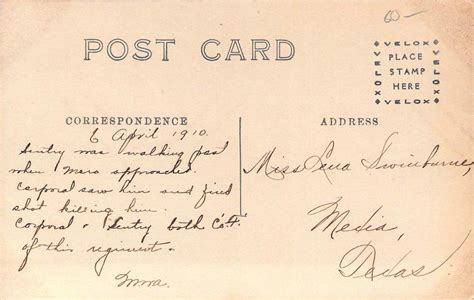 60-
POST CARD
VELOX
VELOX
VELOX
VELOX
PLACE
STAMP
HERE
CORRESPONDENCE
ADDRESS
6 April 1910.
Sentry was walking post
when Moro approached
Corporal saw him and fired
shot killing him.
Corporal & Sentry both Co. F.
of this regiment.
Miss Lena Swinburne,
Media,
Texas.